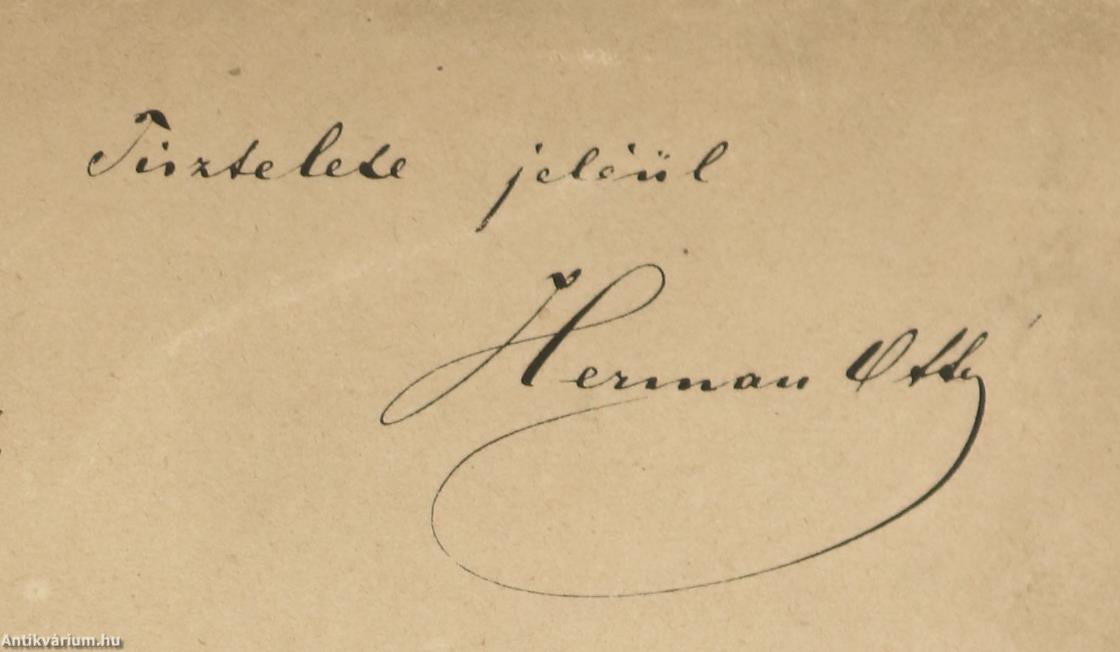 Tisztelete jeléül
Herman Ottó
Antikvárium.hu